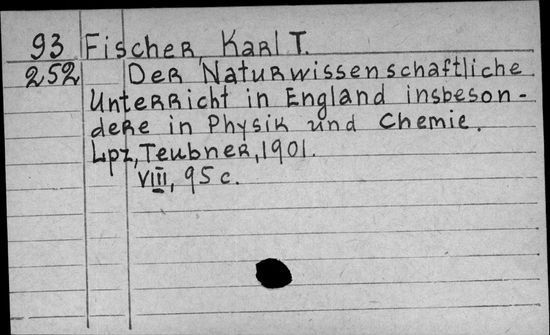 93 Fischer, Karl T.
252 Der Naturwissenschaftliche
Unterricht in England insbeson-
dere in Physik und Chemie.
Lpz, Teubner, 1901.
VIII, 95 c.